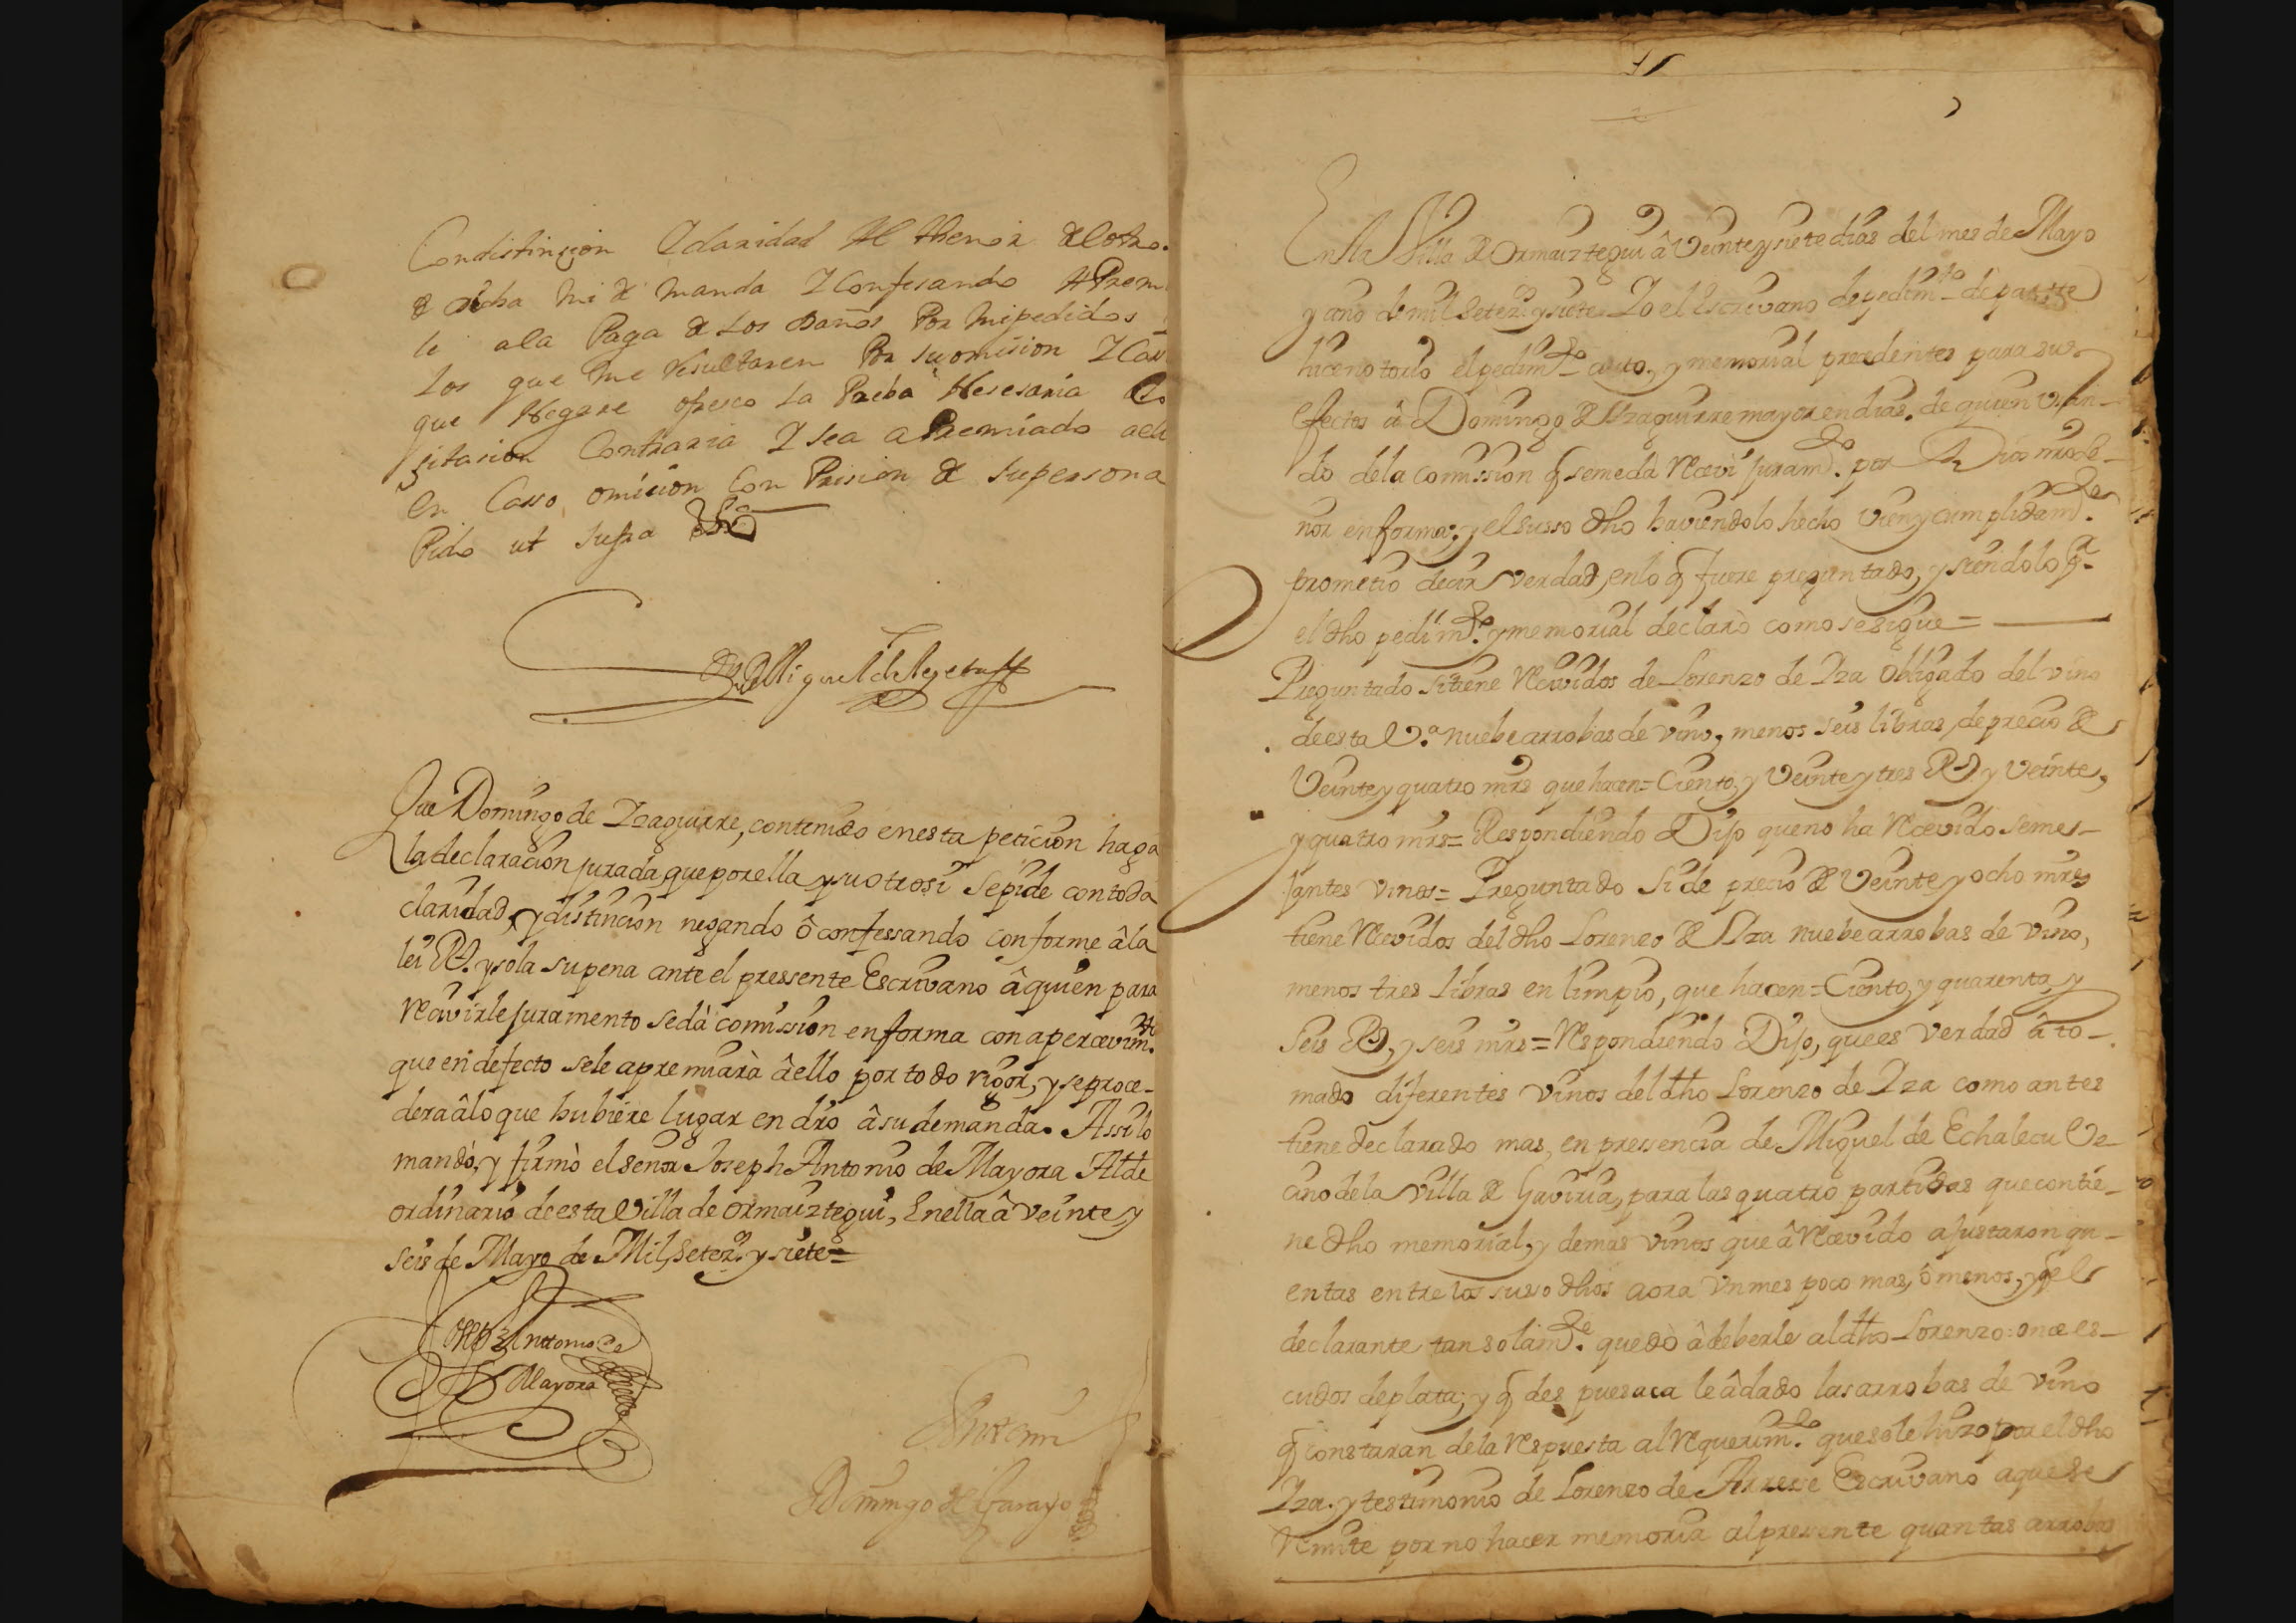 Condistinçion Claridad Al thenor del otro.
de dicha mi de manda Y Confesando APrem
le ala Paga de Los Daños Por mi pedidos
Los que me resultaren Por su omision Y Cass
que Negare ofresco La Prueba Nesesaria
çitacion Contraria Y sea aPremiado
en Casso omicion Con Pricion de su persona
Pido ut supra
Miguel de
Que Domingo de Yzaguirre, contenido en esta peticion haga
la declaracion jurada que por ella y su otrosi se pide con toda
claridad, y distincion negando ô confessando conforme â la
lei Rl. y sola su pena ante el pressente Escrivano â quien para
Recivirle juramento se dà comission en forma con apercevimto.
que en defecto se le apremiarà â ello por todo rigor, y se proce-
dera â lo que hubiere lugar en dro â su demanda. Assi lo
mandò, y firmò el señor Joseph Antonio de Mayora Alde
ordinario de esta Villa de Ormaiztegui, En ella â veinte y
seis de Mayo de Mil, Setezs. y siete=
Antonio de
Mayora
Ante mi
Domingo de Garayo
En la Villa de Ormaiztegui â Veinte y siete dias del mes de Mayo
y año de mil setezs. y siete Yo el Escrivano de pedimto. de parte
hice notorio el pedimto. auto, y memorial precedentes para sus
efectos â Domingo de Yzaguirre mayor en dias. de quien Usan-
do de la comission q se me da Recivi juramto. por Dios nro Se-
ñor en forma; y el susso dho haviendolo hecho vien y cumplidamte.
prometio decir verdad, en lo q fuere preguntado, y siendolo pr.
el dho pedimto. y memorial declarò como se sigue=
Preguntado si tiene Recividos de Lorenzo de Yza obligado del vino
de esta Va. nuebe arrobas de vino, menos seis libras, de precio de
Veinte y quatro mrs que hacen= Ciento, y Veinte y tres Rs y Veinte,
y quatro mrs= Respondiendo Dijo que no ha Recevido seme-
jantes vinos= Preguntado si de precio de Veinte y ocho mrs
tiene Recevidos del dho Lorenzo de Yza nuebe arrobas de vino,
menos tres libras en limpio, que hacen= Ciento, y quarenta, y
seis Rs, y seis mrs= Respondiendo Dijo, que es verdad â to-
mado diferentes vinos del dho Lorenzo de Yza como antes
tiene declarado mas, en pressencia de Miguel de Echalecu Ve-
cino de la Villa de Gaviria, para las quatro partidas que contie-
ne dho memorial, y demas vinos que â Recevido ajustaron qu-
entas entre los susso dhos aora Un mes poco mas, ô menos, y q el
declarante tan solamte. quedò â deberle al dho Lorenzo: once es-
cudos de plata; y q des pues aca le â dado las arrobas de vino
q constaran de la Respuesta al Requerimto. que se le hizo por el dho
Yza. y testimonio de Lorenzo de Arrese Escrivano a que se
Remite por no hacer memoria al presente quantas arrobas